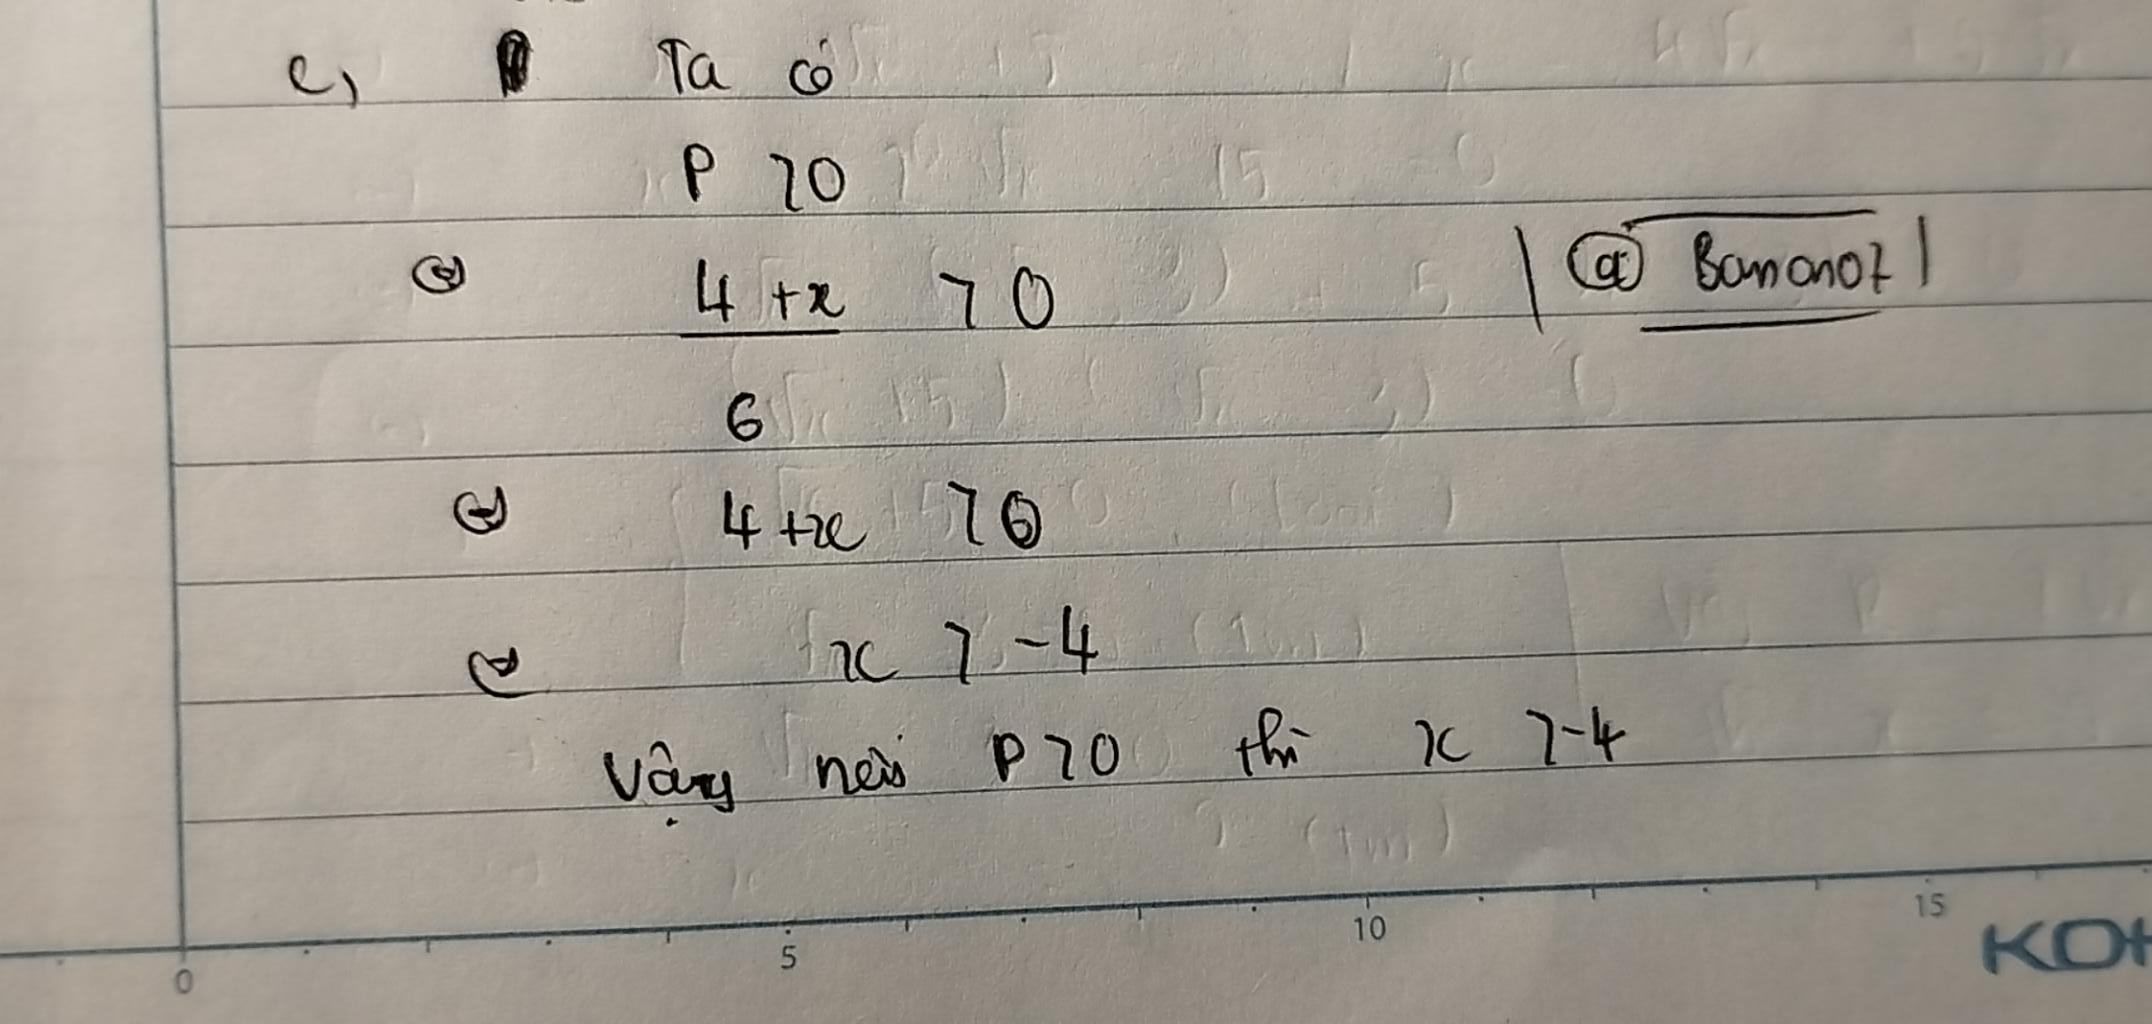 c, Ta có
P > 0
⇔ 4 + x > 0
6
@ Bananot
⇔ 4 + x > 0
⇔ x > -4
Vậy nếu P > 0 thì x > -4
0 5 10 15
KOK